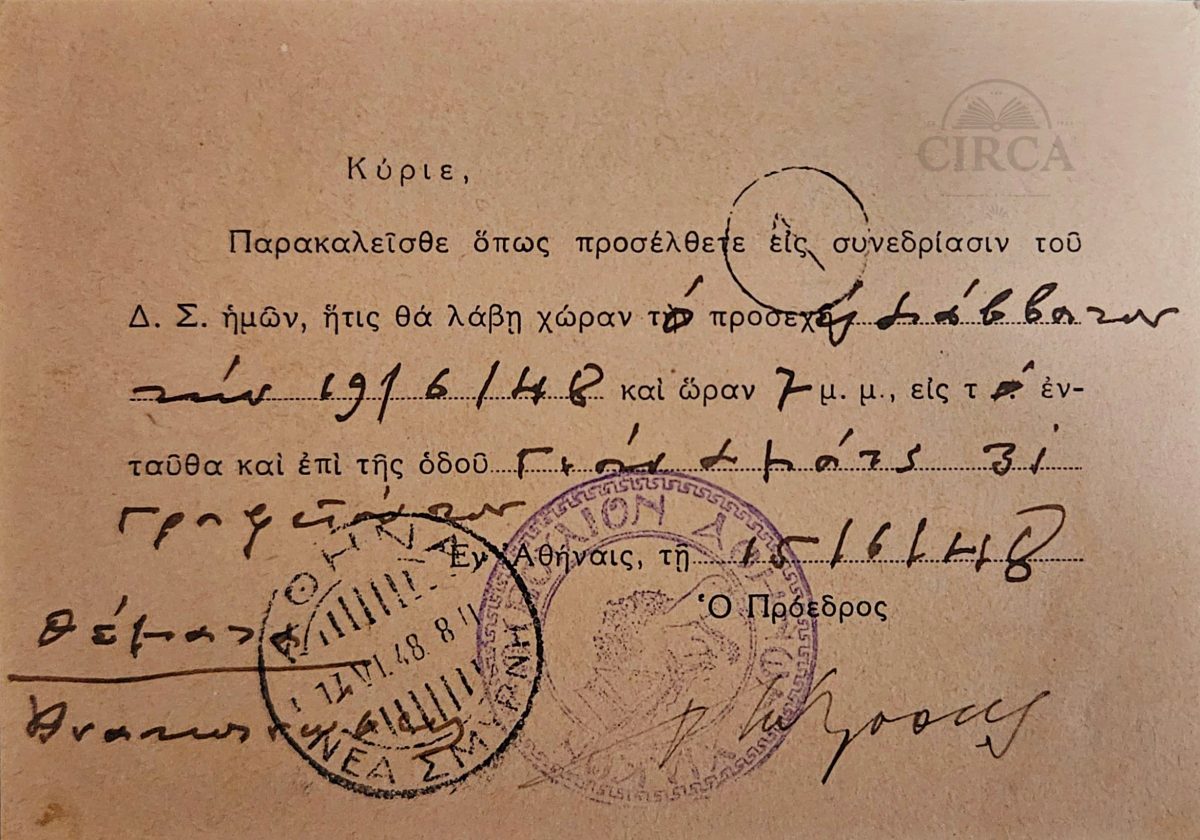 CIRCA
Κύριε,
Παρακαλεῖσθε ὅπως προσέλθετε εἰς συνεδρίασιν τοῦ
Δ. Σ. ἡμῶν, ἥτις θὰ λάβῃ χώραν τὸ προσεχὲς Σάββατον
τὴν 19/6/48 καὶ ὥραν 7 μ. μ., εἰς τὸ ἐν-
ταῦθα καὶ ἐπὶ τῆς ὁδοῦ 31
γραφεῖόν των
Ἐν Ἀθήναις, τῇ 15/6/48
Ὁ Πρόεδρος
Θέματα
Ἀνακοινώσεις
ΑΘΗΝΑΙ
17 VI 48 8
ΝΕΑ ΣΜΥΡΝΗ